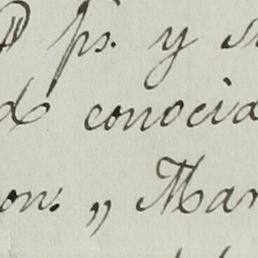 ps. y
conocid
on. „ Mar